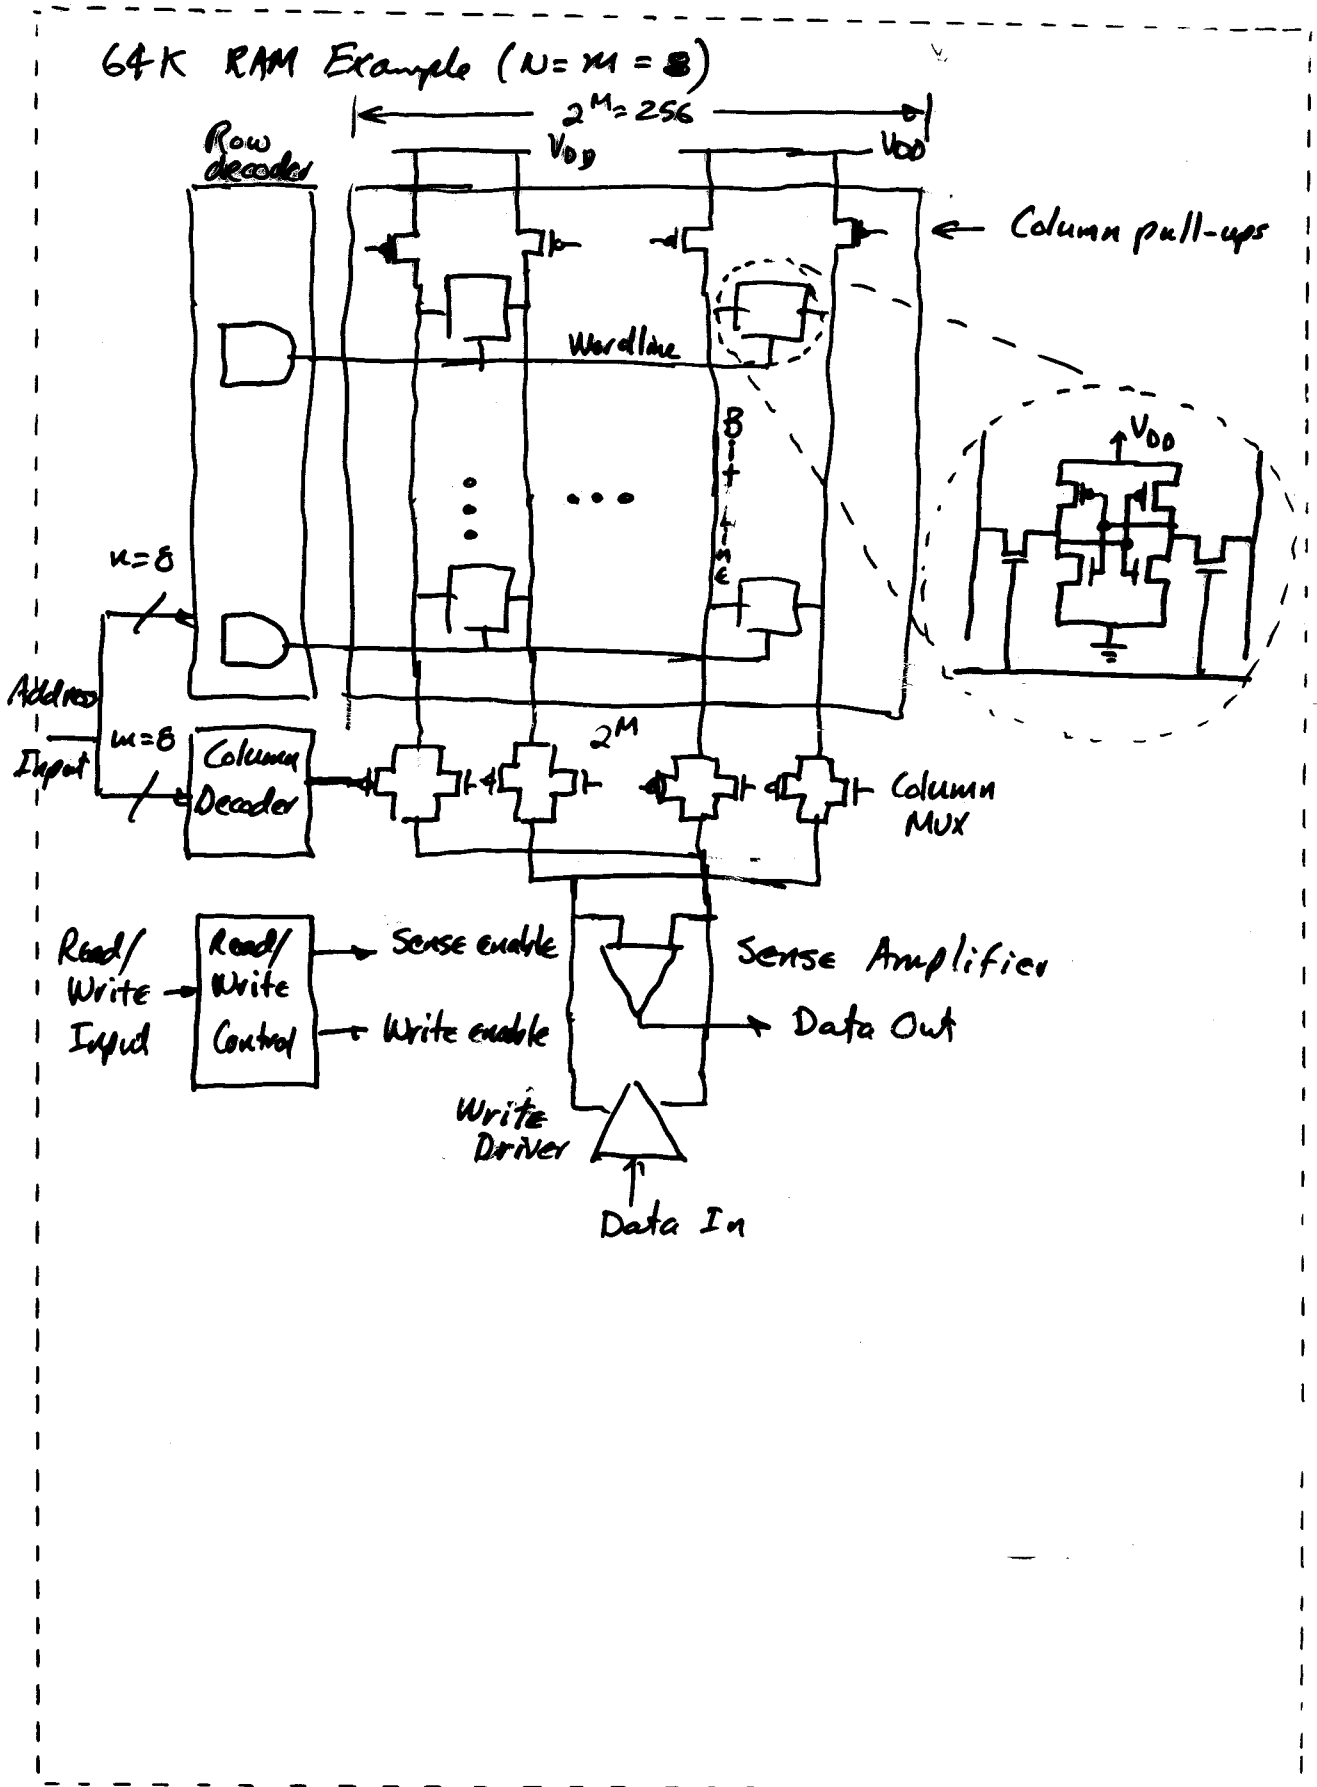 64K RAM Example (N=M=8)
2^M=256
Row
decoder
VDD
VDD
Column pull-ups
Wordline
Bit line
VDD
n=8
Address
Input
m=8
Column
Decoder
2^M
Column
MUX
Read/
Write
Input
Read/
Write
Control
Sense enable
Write enable
Sense Amplifier
Data Out
Write
Driver
Data In